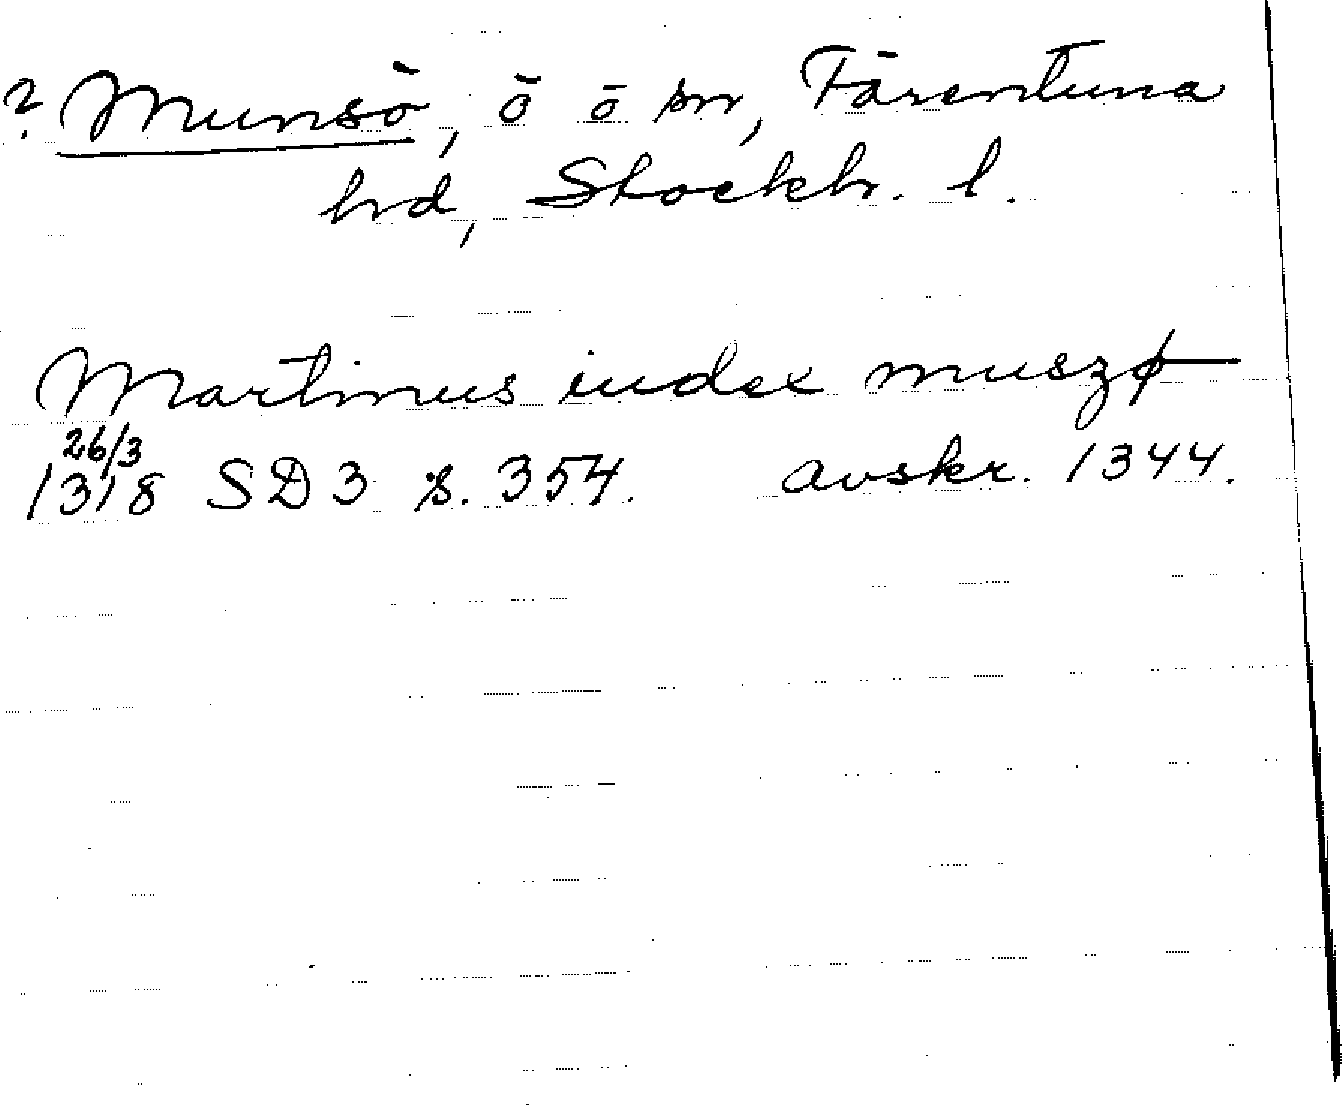 ? Munsö, ö o sn, Färentuna
hrd, Stockh. l.
Martinus iudex muszø
26/3
1318 SD 3 s. 354. avskr. 1344.